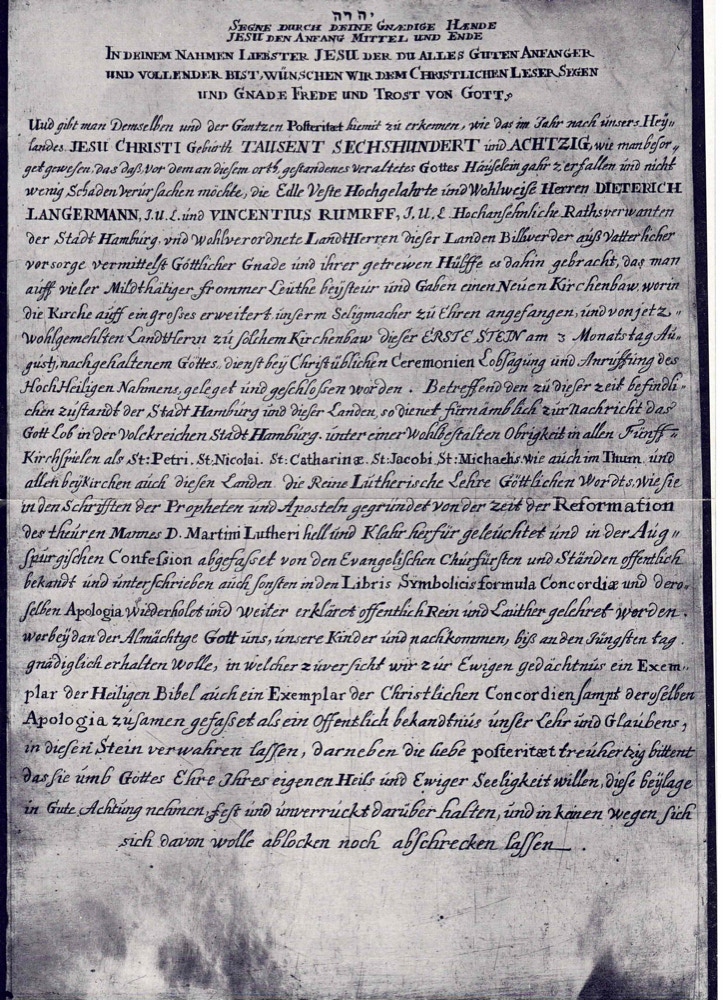 יהוה
SEGNE DURCH DEINE GNÆDIGE HÆNDE
JESU DEN ANFANG MITTEL UND ENDE
IN DEINEM NAHMEN LIEBSTER JESU DER DU ALLES GUTEN ANFANGER
UND VOLLENDER BIST, WÜNSCHEN WIR DEM CHRISTLICHEN LESER SEGEN
UND GNADE FREDE UND TROST VON GOTT,
Und gibt man Demselben und der Gantzen Posteritæt hiemit zu erkennen, wie das im Jahr nach unsers Hey=
landes JESU CHRISTI Gebürth TAUSENT SECHSHUNDERT und ACHTZIG, wie man besor=
get gewesen, das daß, vor dem an diesem orth, gestandenes veraltetes Gottes Häuselein gahr zerfallen und nicht
wenig Schaden verürsachen möchte, die Edle Veste Hochgelahrte und Wohlweise Herren DIETERICH
LANGERMANN, J.U.L. und VINCENTIUS RUMRFF, J.U.L Hochansehnliche Rathsverwanten
der Stadt Hamburg, und Wohlverordnete LandtHerren dieser Landen Billwerder auß Vatterlicher
vorsorge vermittelst Göttlicher Gnade und ihrer getreiwen Hülffe es dahin gebracht, das man
aüff vieler Mildthätiger frommer Leüthe beÿsteür und Gaben einen Neüen Kirchenbaw, worin
die Kirche aüff ein großes erweitert ünserm Seligmacher zü Ehren angefangen, und von jetz=
wohlgemeldten LandtHerrn zü solchem Kirchenbaw dieser ERSTE STEIN am 3 Monatstag Aü=
güstj, nachgehaltenem Göttes, dienst beÿ Christüblichen Ceremonien Lobsagüng und Anrüffüng des
HochHeiligen Nahmens, geleget und geschlossen worden. Betreffend den zü dieser zeit befindli=
chen züstandt der Stadt Hamburg und dieser Landen, so dienet fürnämblich zür Nachricht das
Gott Lob in der Volckreichen Stadt Hambürg, ünter einer Wohlbestalten Obrigkeit in allen Fünff=
Kirchspielen als St: Petri. St: Nicolai. St: Catharinæ. St: Jacobi. St: Michaelis. wie auch im Thum, und
allen beÿkirchen auch diesen Landen, die Reine Lütherische Lehre Göttlichen Wordts, wie sie
in den Schrifften der Propheten und Aposteln gegründet von der zeit der Reformation
des theüren Mannes D. Martini Lutheri hell und Klahr herfür geleüchtet und in der Aug=
spürgischen Confession abgefasset von den Evangelischen Chürfürsten und Ständen offentlich
bekandt und ünterschrieben aüch sonsten in den Libris Symbolicis formula Concordiæ und dero=
selben Apologia Wiederholet und weiter erkläret offentlich Rein und Lauther gelehret worden.
worbeÿ dan der Almächtige Gott üns, ünsere Kinder und nachkommen, biß an den Jüngsten tag
gnädiglich erhalten Wolle, in welcher züversicht wir zür Ewigen gedächtnüs ein Exem=
plar der Heiligen Bibel auch ein Exemplar der Christlichen Concordien sampt deroselben
Apologia züsamen gefasset als ein Offentlich bekandtnüs ünser Lehr und Glaübens,
in diesen Stein verwahren lassen, darneben die liebe posteritæt treühertzig bittent
das sie ümb Göttes Ehre Jhres eigenen Heils und Ewiger Seeligkeit willen, diese beÿlage
in Güte Achtüng nehmen, fest und ünverrückt darüber halten, und in keinen wegen sich
sich davon wolle ablocken noch abschrecken lassen.